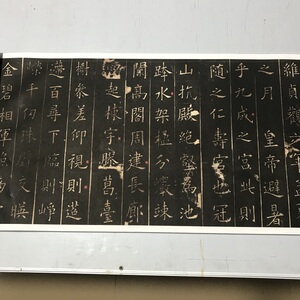 維貞觀
之月 皇帝避暑
乎九成之宮此則
隨之仁壽宮也冠
山抗殿絕壑為池
跨水架楹分巖竦
闕高閣周建長廊
四起棟宇膠葛臺
榭參差仰視則迢
遰百尋下臨則崢
嶸千仞珠璧交映
金碧相暉照灼